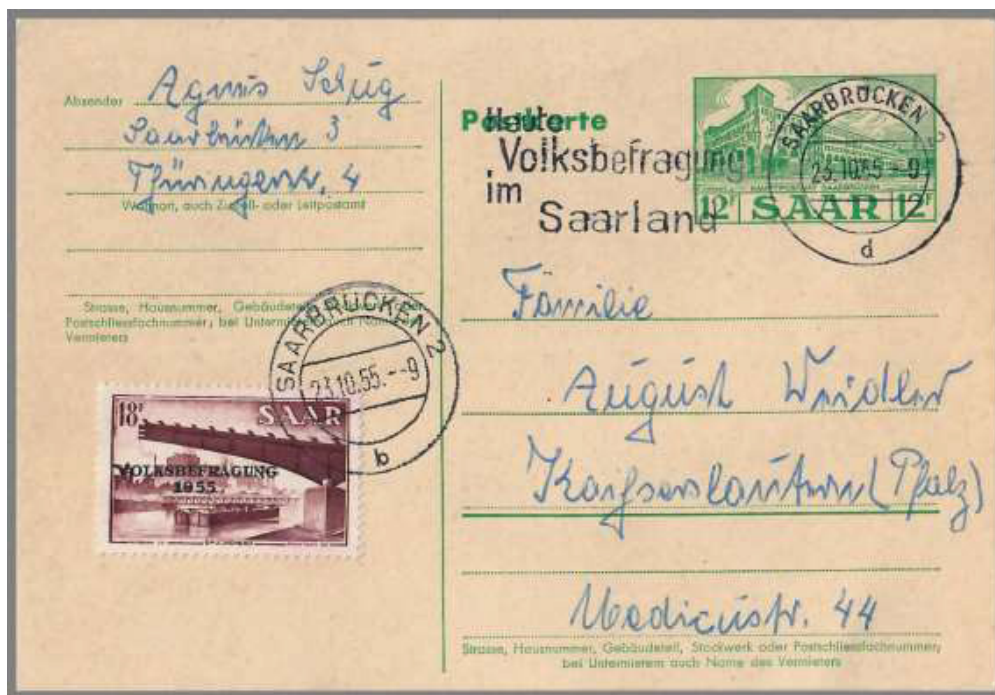 Absender Agnes Schug
Saarbrücken 3
Thüringerstr. 4
Wohnort, auch Zustell- oder Leitpostamt
Strasse, Hausnummer, Gebäudeteil,
Postschliessfachnummer; bei Untermietern auch Name des
Vermieters
SAARBRÜCKEN 2
23.10.55.--9
b
18F SAAR
VOLKSBEFRAGUNG
1955
Postkarte
Heute
Volksbefragung
im
Saarland
SAARBRÜCKEN 2
23.10.55.--9
d
12F SAAR 12F
Familie
August Weidler
Kaiserslautern (Pfalz)
Medicusstr. 44
Strasse, Hausnummer, Gebäudeteil, Stockwerk oder Postschliessfachnummer;
bei Untermietern auch Name des Vermieters